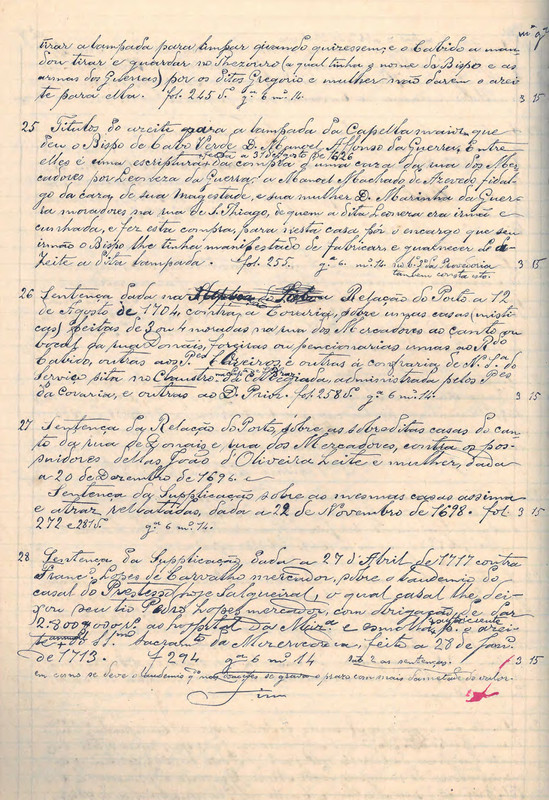 mº gª
tirar a lampada para limpar quando quizessem; e o Cabido a man-
dou tirar e guardar no Thezouro (a qual tinha o nome do Bispo e as
armas dos Guerras) por os ditos Gregorio e mulher não darem o azei-
te para ella. fol. 245 vº gª 6 mº 14. 3 15
25 Titulos do azeite para a lampada da Capella maior que
deu o Bispo de Cabo Verde D. Manoel Affonso da Guerra. Entre
elles é uma escriptura feita a 31 de Agosto de 1626 da compra d'uma caza da rua dos Mer-
cadores por Leoneza da Guerra, a Manoel Machado de Azevedo, fidal-
go da caza de sua Magestade, e sua mulher D. Marinha da Guer-
ra moradores na rua de S. Thiago, de quem a dita Leoneza era irmã e
cunhada, e fez esta compra, para nesta casa pôr o encargo que seu
irmão o Bispo lhe tinha manifestado de fabricar e guarnecer de a-
zeite a dita lampada. fol. 255. gª 6. mº 14. 3 15
tambem consta isto.
26 Sentença dada na Relação do Porto a 12
de Agosto de 1704, contra a Coraria, sobre umas casas (misti-
cas) feitas de 3 ou 4 moradas na rua dos Mercadores ao canto ou
bocal da rua Donais, foreiras ou pencionarias umas ao Rdo
Cabido, outras aos Pes Terceiros, e outras á confraria de N. Sra do
Serviço sita no Claustro da Collegiada, administrada pelos Pes
da Coraria, e outras ao D. Prior. fol 258 vº gª 6 mº 14. 3 15
27 Sentença da Relação do Porto, sobre as sobreditas casas do can-
to da rua de Donais e rua dos Mercadores, contra os pos-
suidores dellas João d'Oliveira Leite e mulher, dada
a 20 de Dezembro de 1696. e
Sentença da Supplicação sobre as mesmas casas acima
e atraz relatadas, dada a 22 de Novembro de 1698. fol. 3 15
272 e 281 vº gª 6 mº 14.
28 Sentença da Supplicação dada a 27 d'Abril de 1717 contra
Francº Lopes de Carvalho mercador, sobre o laudemio do
casal do hoje Salgueiral, o qual casal lhe dei-
xou seu tio Pedro Lopes mercador, com obrigação de dar
ao hospital da Mizª e azei-
te Sacramto da Mizericordia, feito a 28 de
de 1713. f 294 gª 6 mº 14 são 2 as sentenças. 3 15
em como se deve o laudemio qdo nas se grava o prazo com mais da metade do valor.
Fim